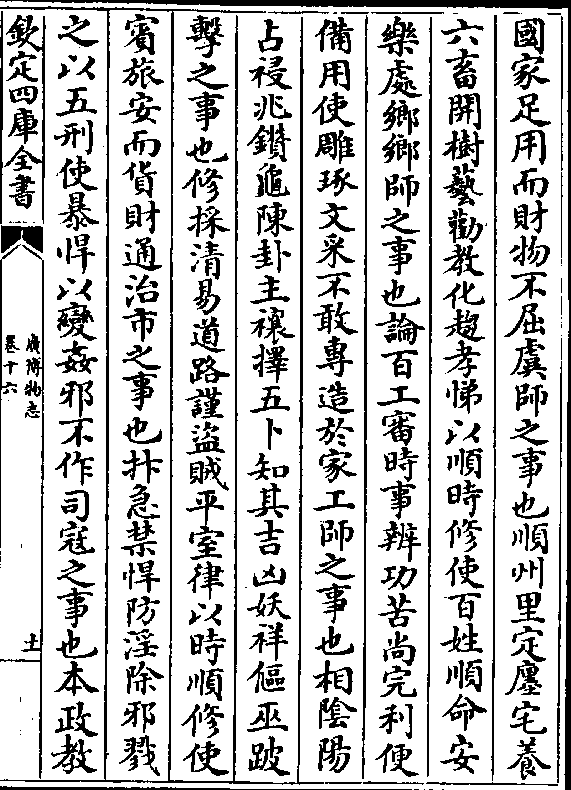 國家足用而財物不屈虞師之事也順州里定廛宅養
六畜閒樹藝勸教化趨孝悌以順時修使百姓順命安
樂處鄉鄉師之事也論百工審時事辨功苦尚完利便
備用使雕琢文采不敢專造於家工師之事也相陰陽
占祲兆鑽龜陳卦主禳擇五卜知其吉凶妖祥傴巫跛
擊之事也修採清易道路謹盜賊平室律以時順修使
賓旅安而貨財通治市之事也抃急禁悍防淫除邪戮
之以五刑使暴悍以變姦邪不作司寇之事也本政教
欽定四庫全書
廣博物志
卷十六
十一